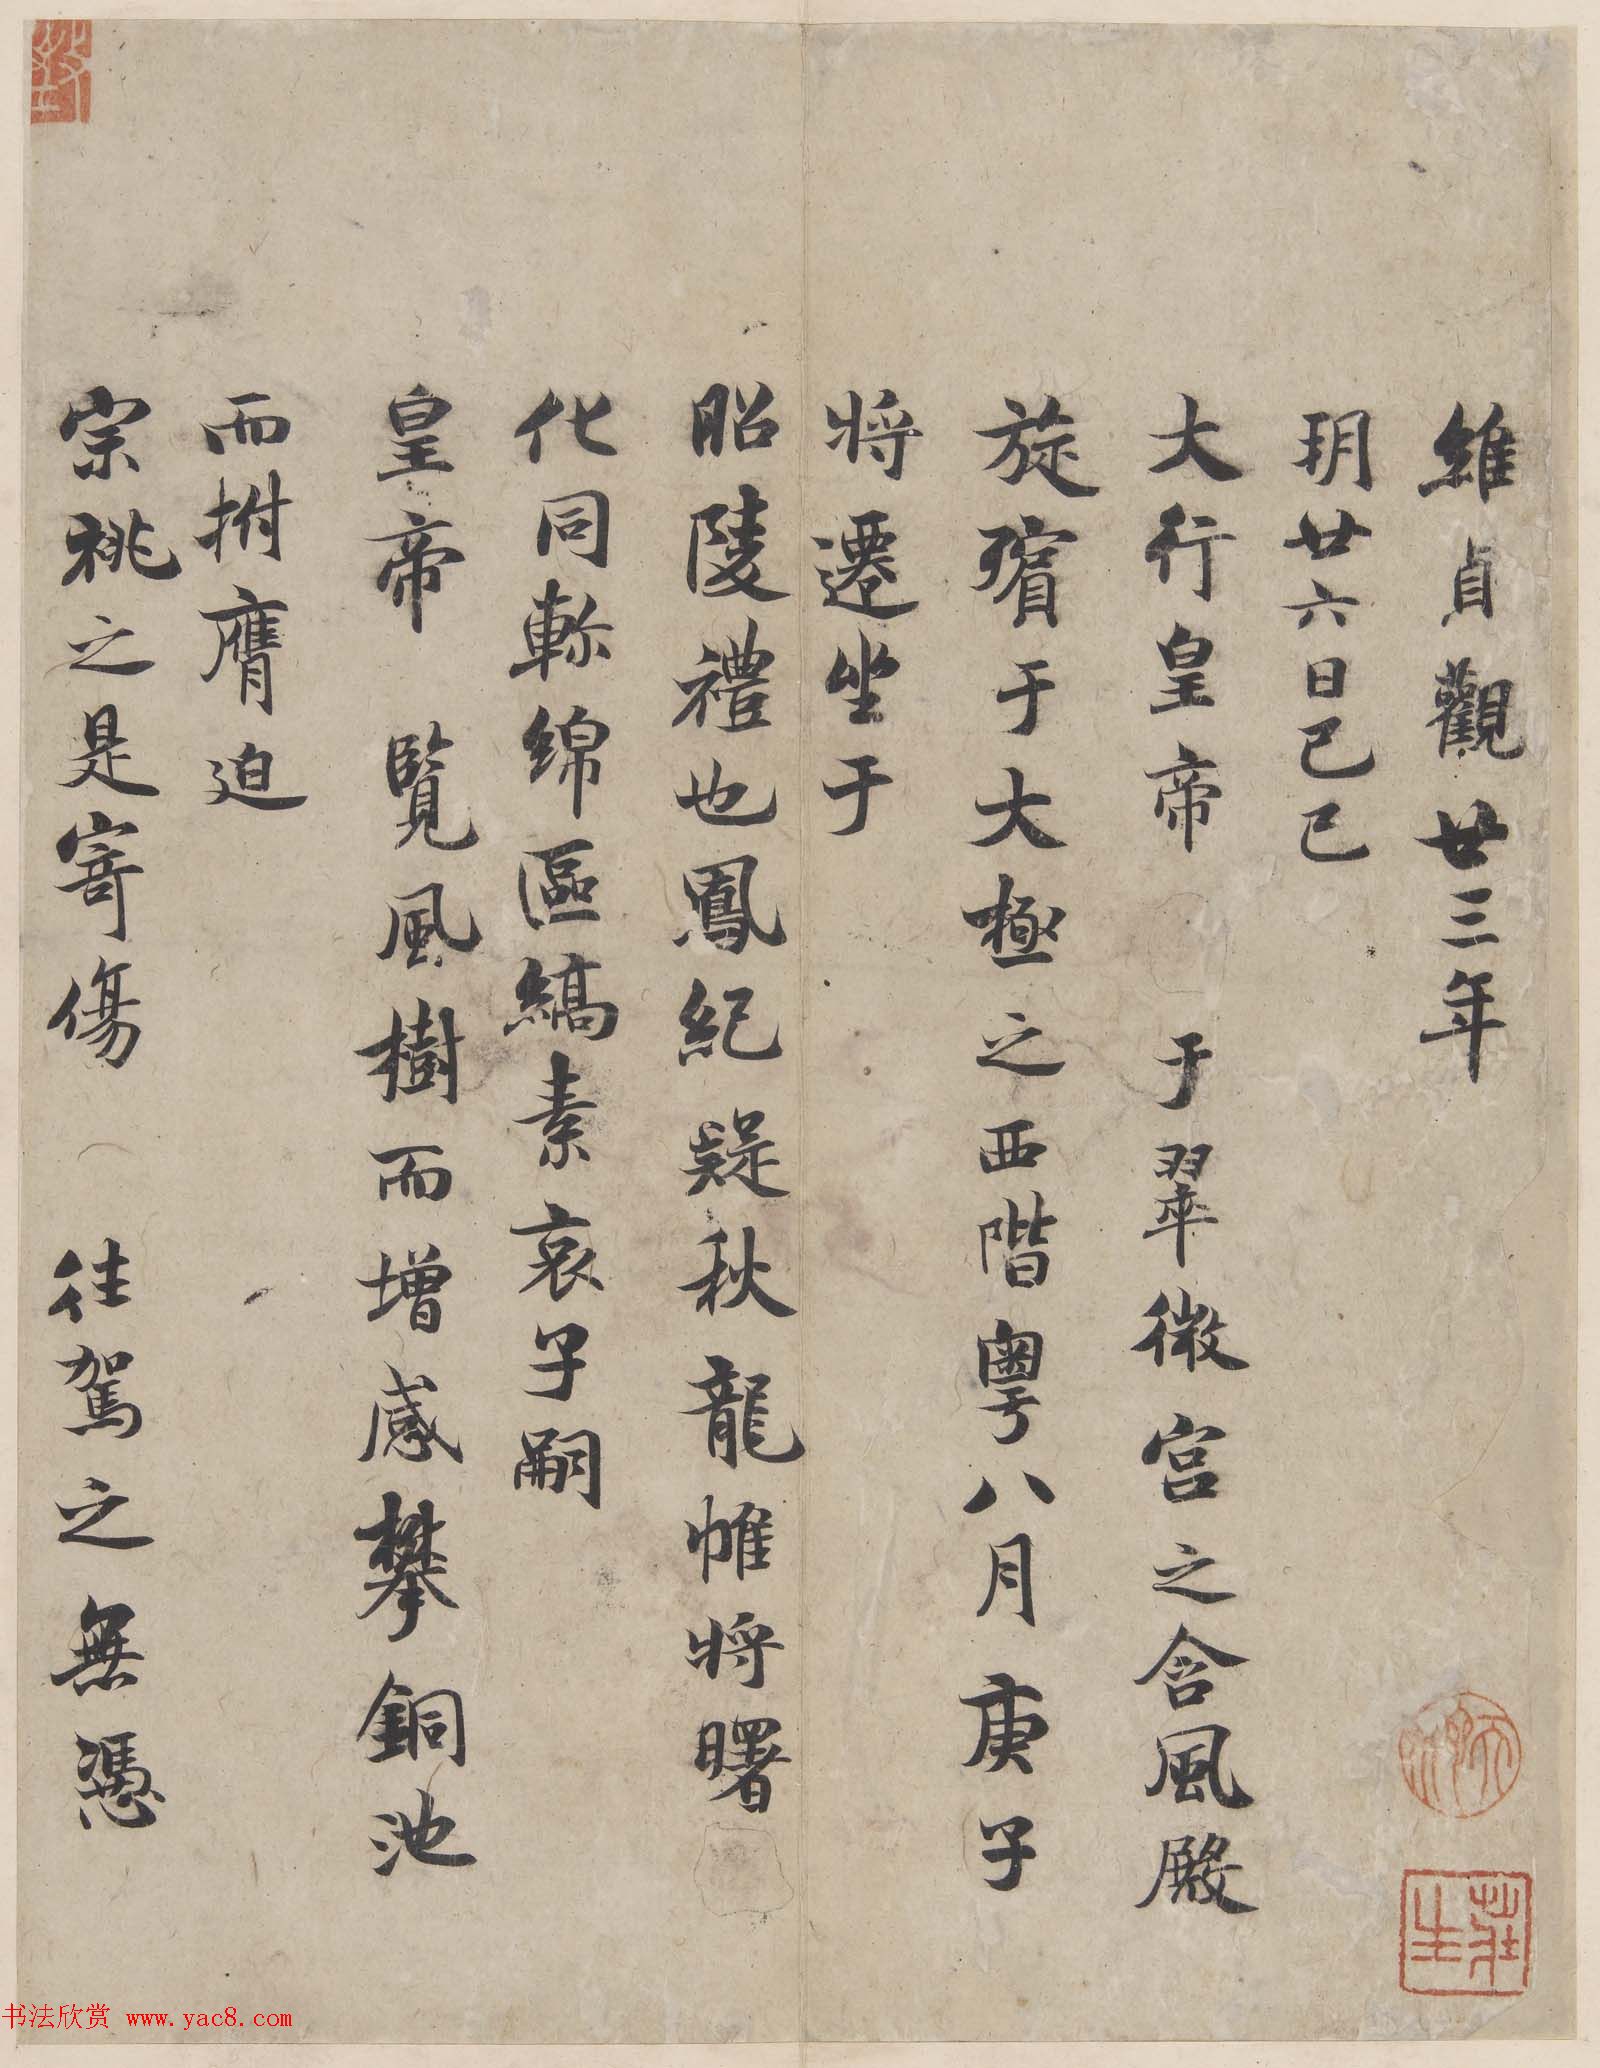 維貞觀廿三年
玥廿六日己巳
大行皇帝 于翠微宮之含風殿
旋殯于大極之西階粵八月庚子
將遷坐于
昭陵禮也鳳紀疑秋龍帷將曙
化同軫綿區縞素哀子嗣
皇帝 覽風樹而增感攀銅池
而拊膺迫
宗祧之是寄傷 往駕之無憑
莊生
书法欣赏 www.yac8.com